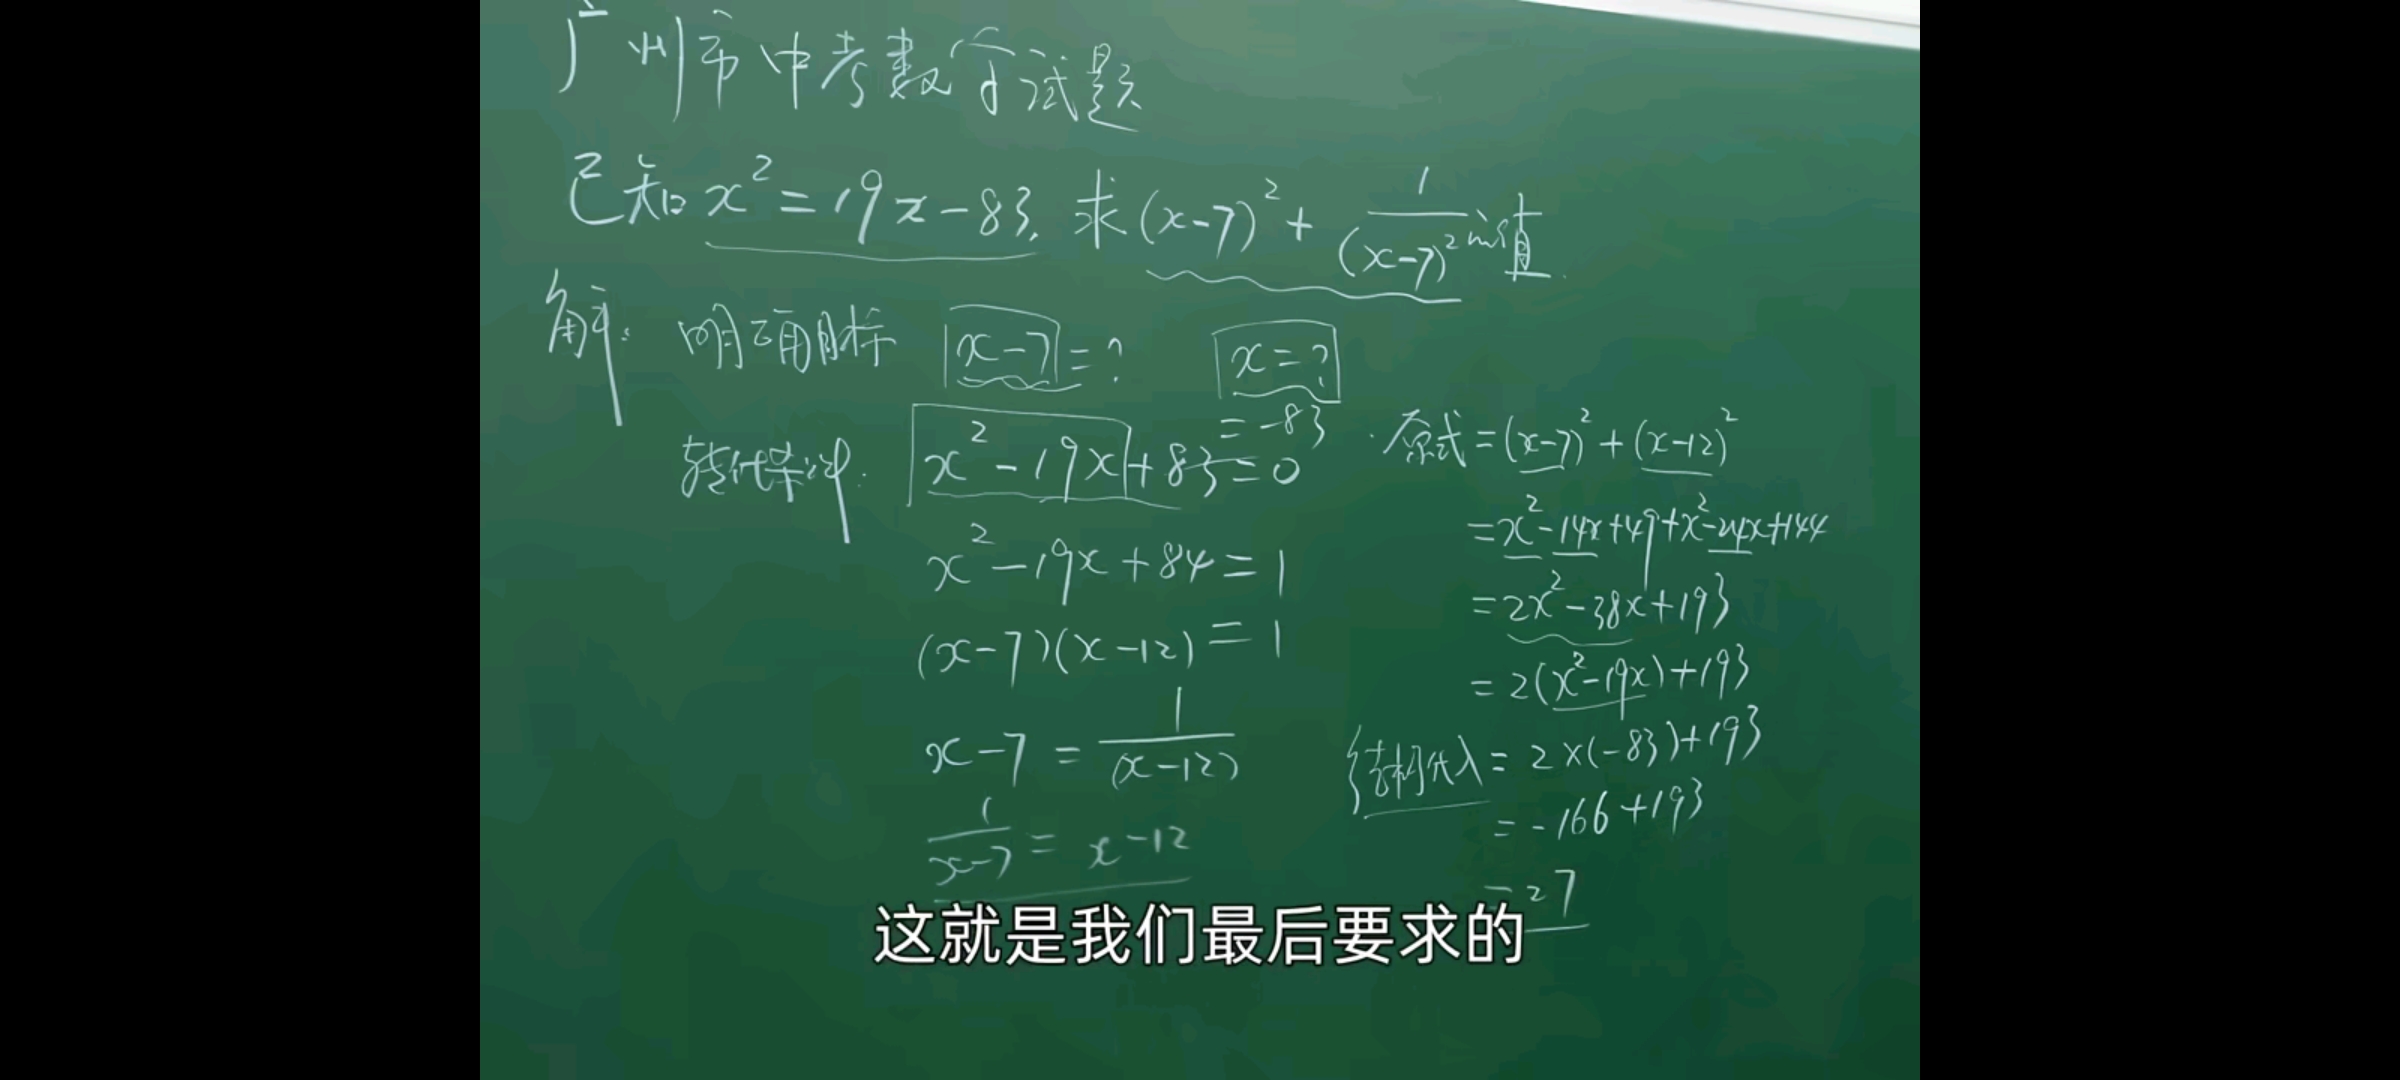 广州市中考数学试题
已知x²=19x-83, 求(x-7)²+1/(x-7)²的值.
解: 明确目标 x-7=? x=?
转化条件: x²-19x+83=0
=-83
x²-19x+84=1
(x-7)(x-12)=1
x-7=1/(x-12)
1/(x-7)=x-12
原式=(x-7)²+(x-12)²
=x²-14x+49+x²-24x+144
=2x²-38x+193
=2(x²-19x)+193
结构代入=2×(-83)+193
=-166+193
=27
这就是我们最后要求的